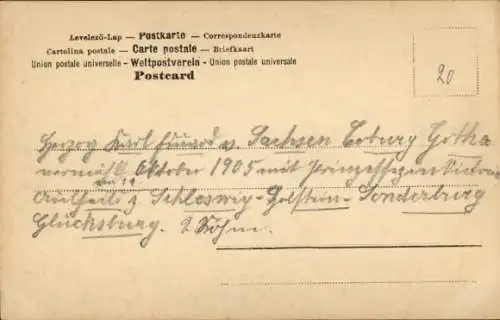 Levelező-Lap — Postkarte — Correspondenzkarte
Cartolina postale — Carte postale — Briefkaart
Union postale universelle - Weltpostverein - Union postale universale
Postcard
20
Herzog Karl Eduard v. Sachsen Coburg Gotha
vermählt Oktober 1905 mit Prinzessin Victoria
am 11.
Adelheid z. Schleswig-Holstein-Sonderburg
Glücksburg. 2 Söhne.